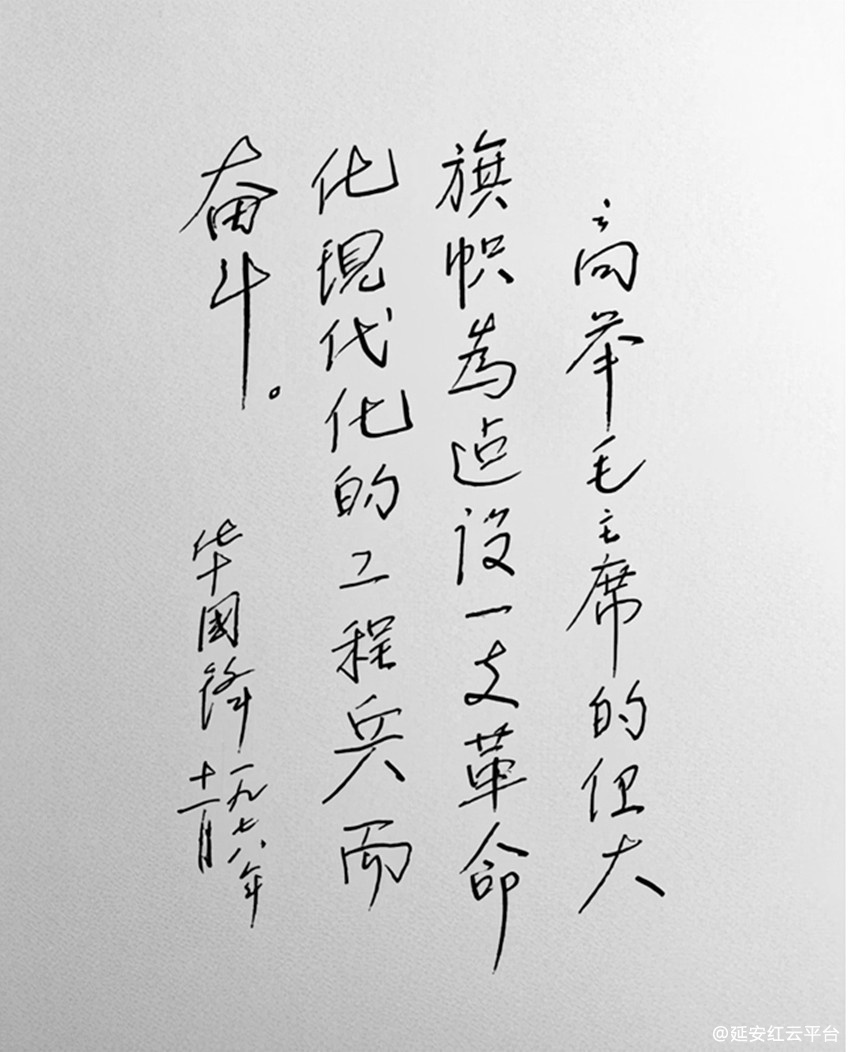 高举毛主席的伟大
旗帜為迠设一支革命
化現代化的工程兵而
奋斗。
华國锋
一九七八年
十一月
@延安红云平台